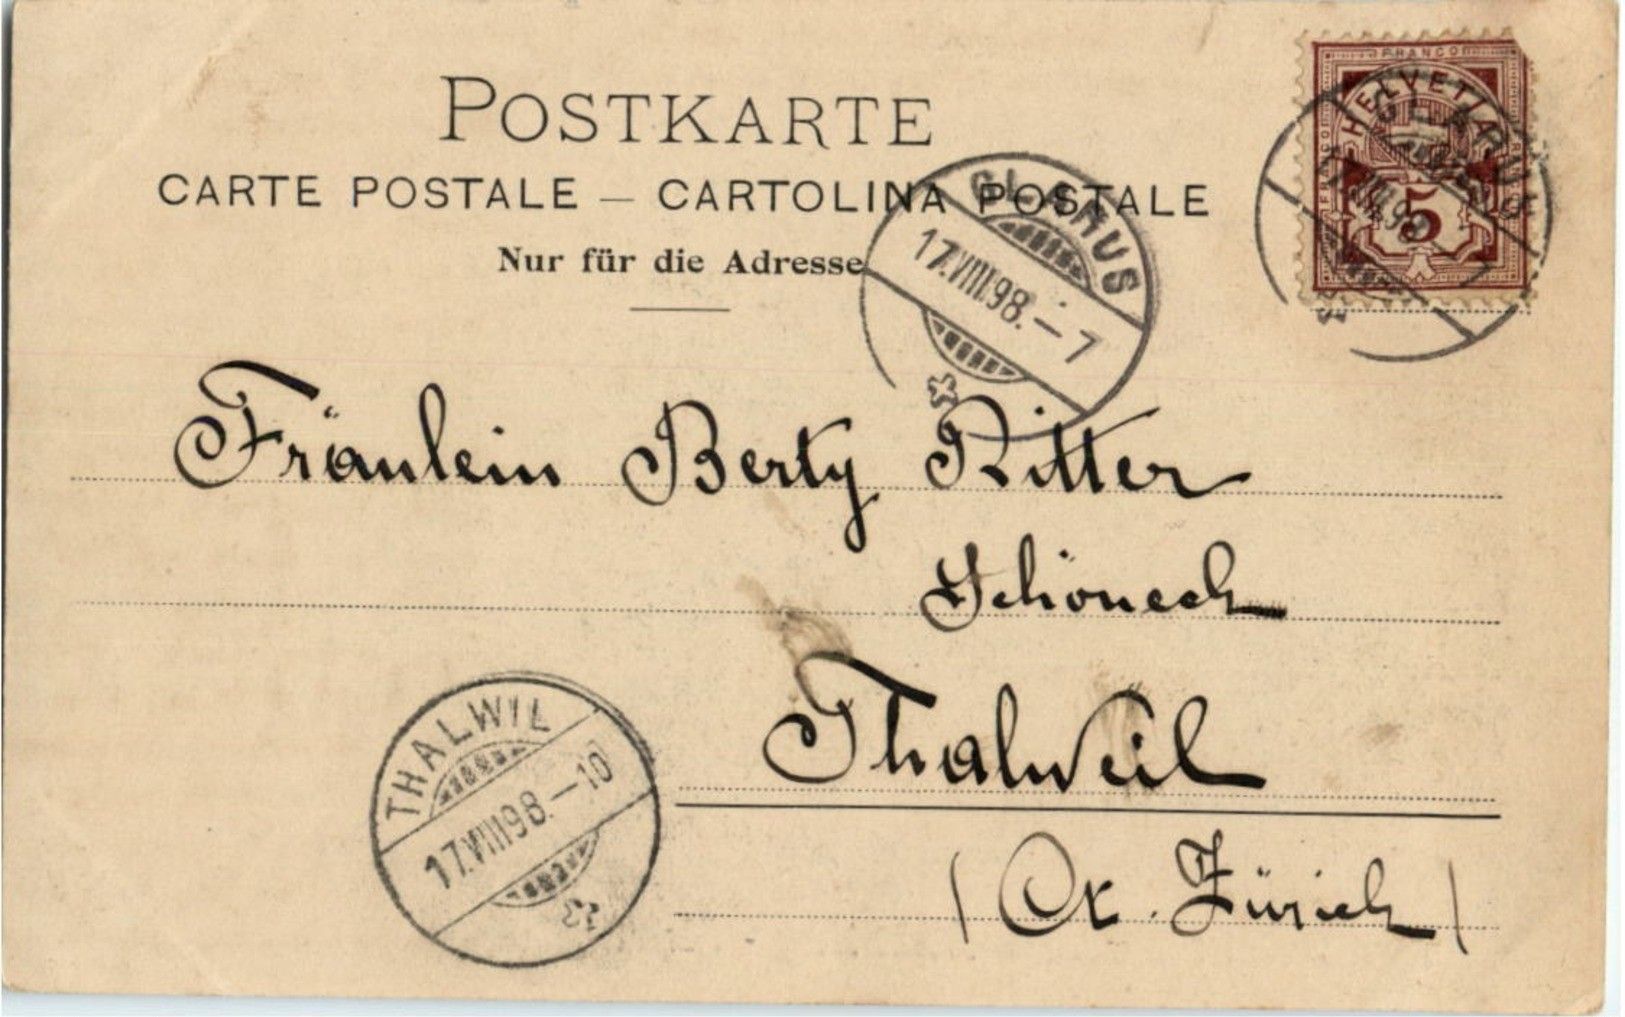 POSTKARTE
CARTE POSTALE — CARTOLINA POSTALE
Nur für die Adresse
FRANCO
HELVETIA
FRANCO
5
GLARUS
17.VIII.98.–7
GLARUS
17.VIII.98.–7
Fräulein Berty Ritter
Schöneck
Thalweil
(Ct. Zürich)
THALWIL
17.VIII98.–10